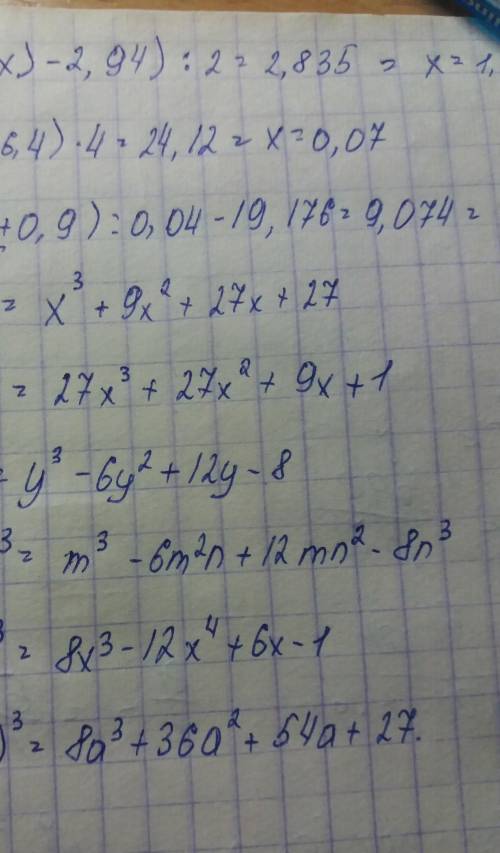 x) - 2,94) : 2 = 2,835 = x = 1,
6,4) · 4 = 24,12 = x = 0,07
+0,9) : 0,04 - 19,176 = 9,074 =
= x³ + 9x² + 27x + 27
= 27x³ + 27x² + 9x + 1
= y³ - 6y² + 12y - 8
³ = m³ - 6m²n + 12mn² - 8n³
³ = 8x³ - 12x⁴ + 6x - 1
)³ = 8a³ + 36a² + 54a + 27.